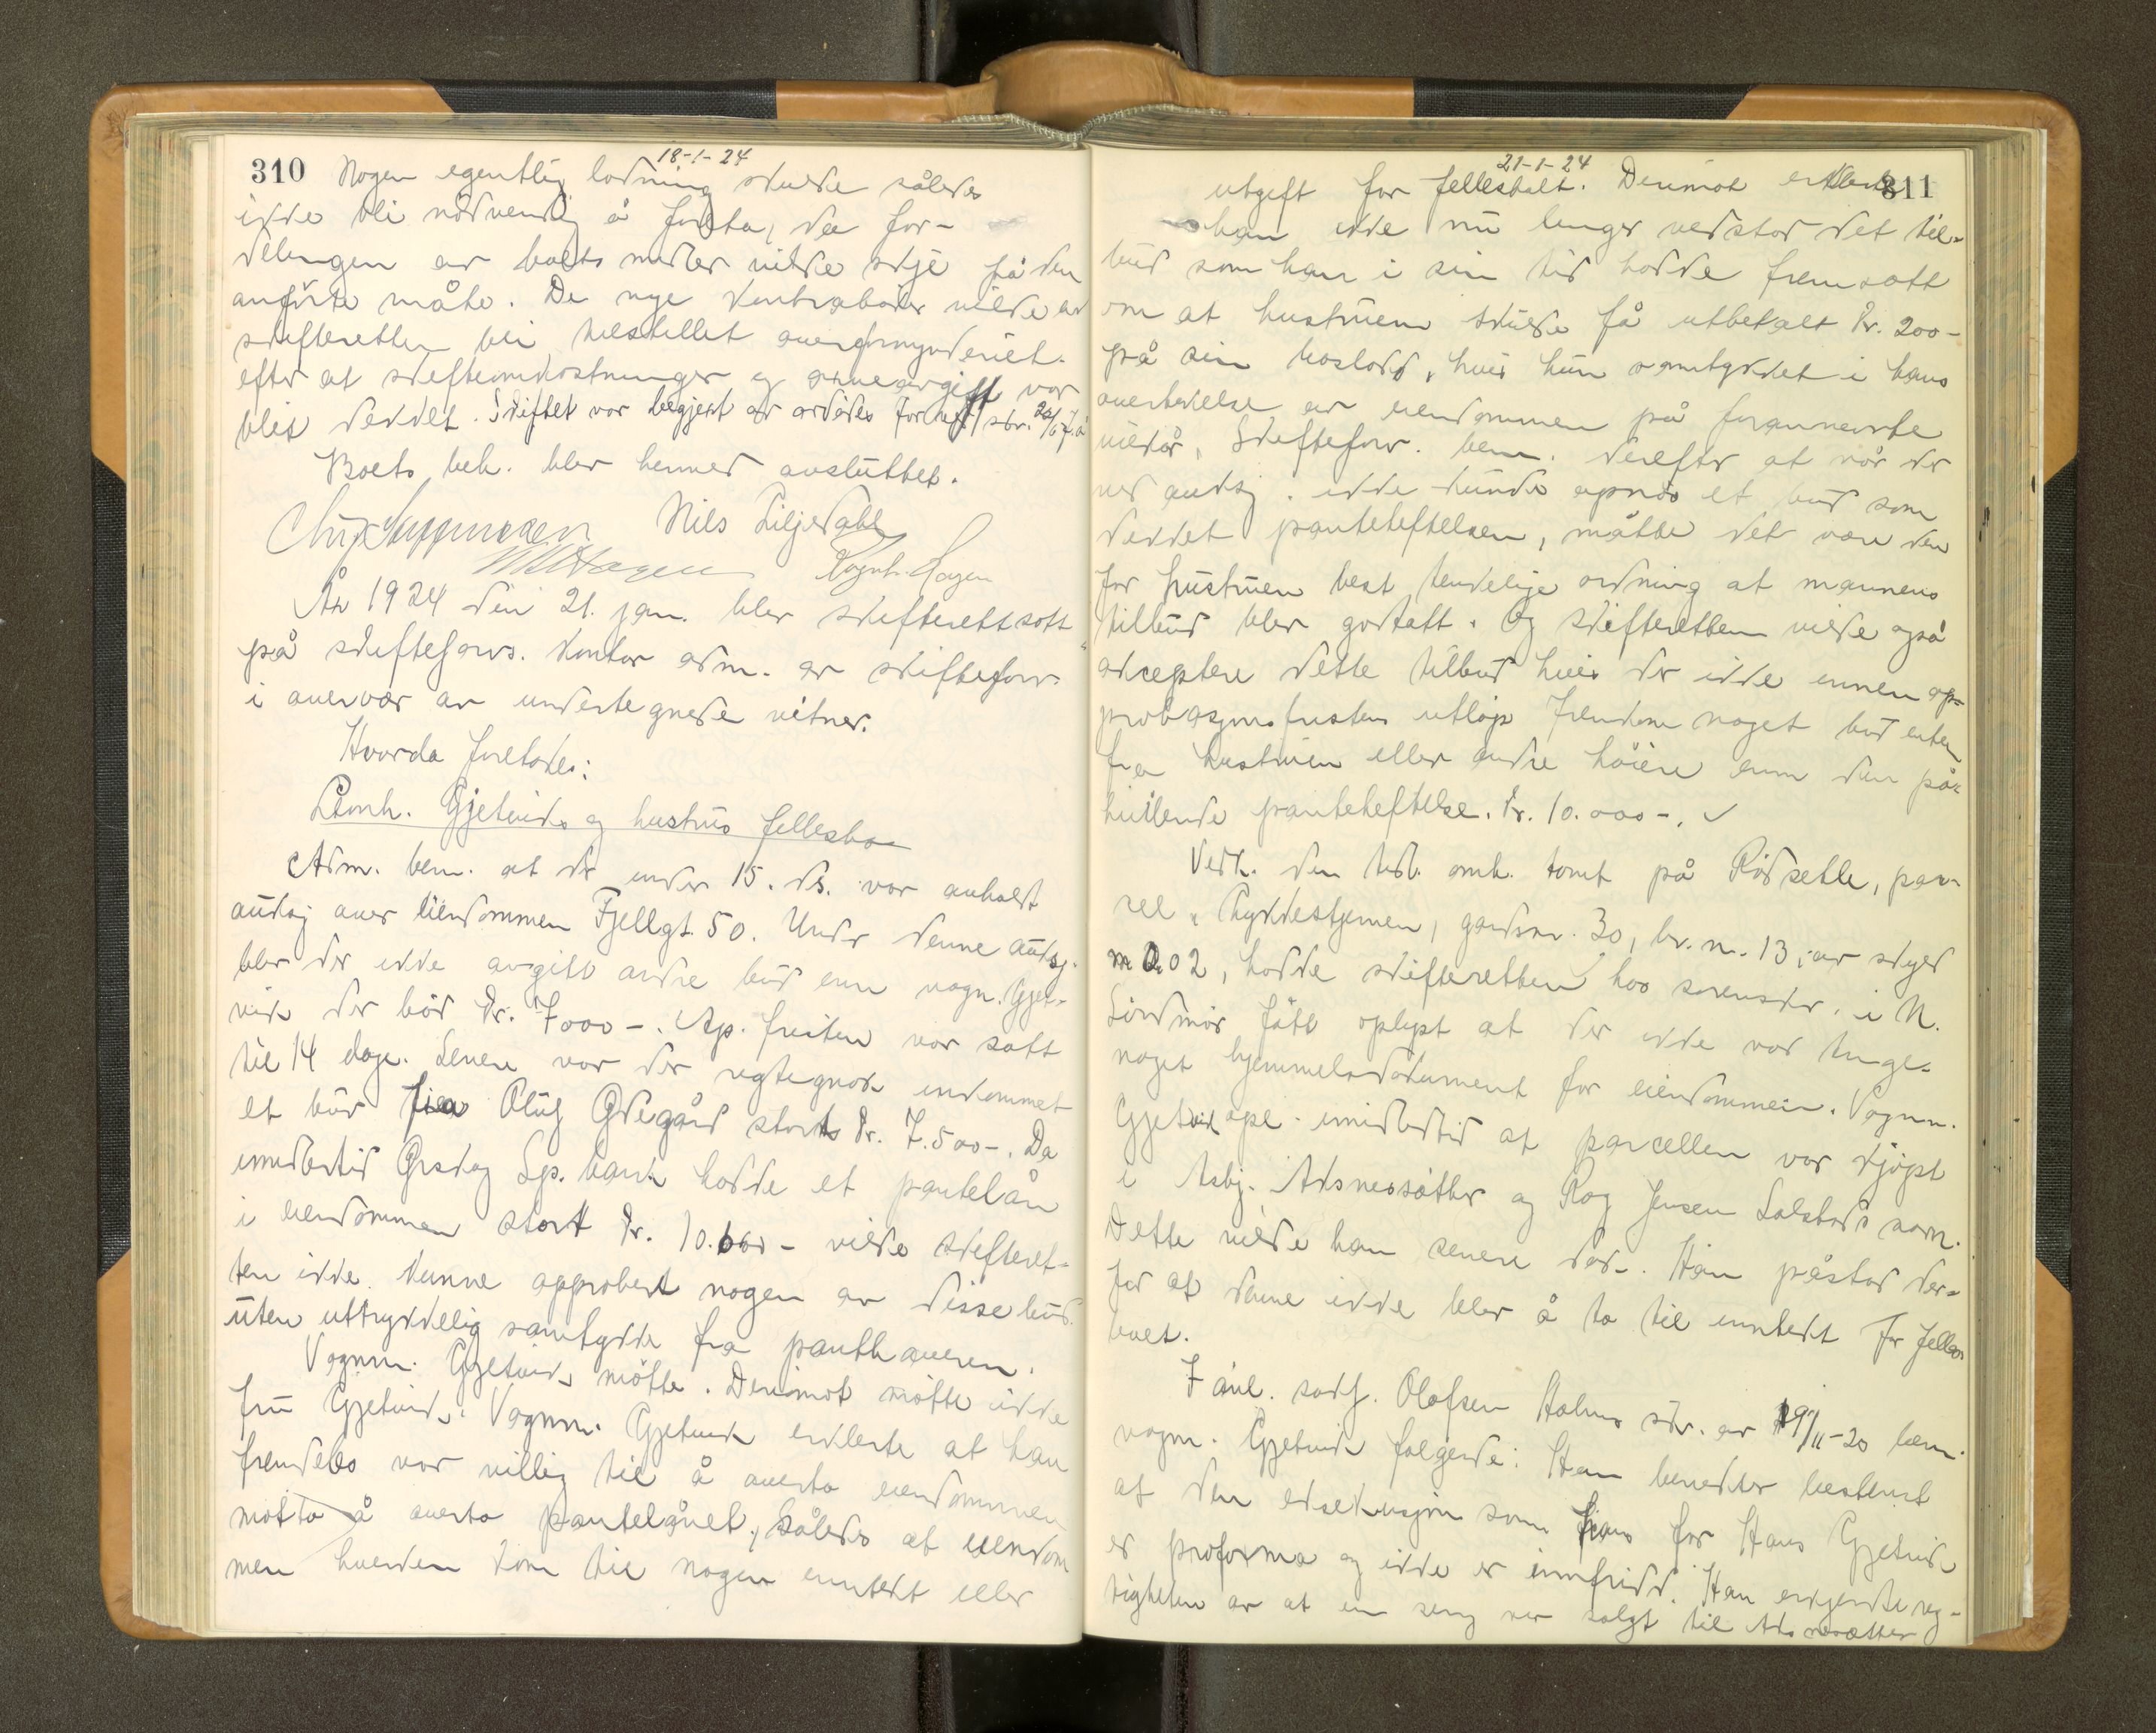 310
18-1-24
Nogen egentlig lodning skulde således
ikke bli nødvendig å foreta, da for-
delingen av boets midler vilde skje på den
anførte måte. De nye kontrabøker vilde av
skifteretten bli tilstillet overformynderiet.
efter at skifteomkostninger og arveavgift var
blit dekket. Skiftet var begjert av
Boets beh. blev hermed avsluttet.
Nils Liljedahl
Hagen Ragnh. Hagen
År 1924 den 21. jan. blev skifterett satt
på skifteforv. kontor adm. av skifteforv.
i overvær av undertegnede vitner.
Hvorda foretokes:
Leonh. Gjetviks og hustrus fellesbo
Adm. bem. at der under 15. ds. var avholdt
auksj over eiendommen Fjellgt. 50. Under denne auksj.
blev der ikke avgitt andre bud enn vogn. Gjet-
vik der bød kr. 7000-. Ap. fristen var satt
til 14 dage. Senere var der vegtegnede innkommet
et bud fra Oluf Ødegård stort kr. 7.500-. Da
imidlertid Ørskog Sp. bank hadde et pantelån
i eiendommen stort kr. 10.000- vilde skifteret-
ten ikke kunne approbert nogen av disse bud
uten uttrykkelig samtykke fra panthaveren.
Vognm. Gjetvik møtte. Derimot møtte ikke
fru Gjetvik. Vognm. Gjetvik erklerte at han
fremdeles var villig til å overta eiendommen
mot å overta pantelånet, således at eiendom
men hverken kom til nogen inntekt eller
311
21-1-24
utgift for fellesboet. Derimot erklerte
han ikke nu lenger vedstod det til-
bud som han i sin tid hadde fremsatt
om at hustruen skulde få utbetalt kr. 200-
på sin boslodd, hvis hun samtykket i hans
overtakelse av eiendommen på forannevnte
vilkår. Skifteforv. bem. derefter at når der
ved auksj. ikke kunde opnåes et bud som
dekket panteheftelsen, måtte det være den
for hustruen best tenkelige ordning at mannens
tilbud blev godtatt. Og skifteretten vilde også
akceptere dette tilbud hvis der ikke innen ap-
probasjonsfristens utløp fremkom noget bud enten
fra hustruen eller andre høiere enn den på-
hvilende panteheftelse kr. 10.000-.
Vedk. den tidl. omh. tomt på Rødsetle, par-
sel Lykkestjernen, gardsnr. 30, br. nr. 13, av skyld
m 0.02, hadde skifteretten hos sorenskr. i N.
Sundmør fått oplyst at der ikke var tinge.
noget hjemmelsdokument for eiendommen. Vognm.
Gjetvik opl. imidlertid at parcellen var kjøpt
i Asbj. Aksnessætter og Rag Jensen Solstads navn.
Dette vilde han senere dok. Han påstod der-
for at denne ikke blev å ta til inntekt for felles
boet.
I anl. sakf. Olafsen Holms skr. av 19/11-20 bem.
vognm. Gjetvik følgende: Han benekter bestemt
at den eksekusjon som for Hans Gjetvik
er proforma og ikke er innfridd. Han erkjente rig-
tigheten av at en seng var solgt til Aksnessætter